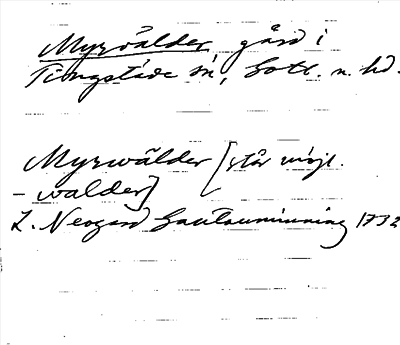 Myrvälder gård i
Tingstäde sn, Gotl. n. hd.
Myrwälder [står möjl.
- walder]
L. Neogard Gautauminning 1732